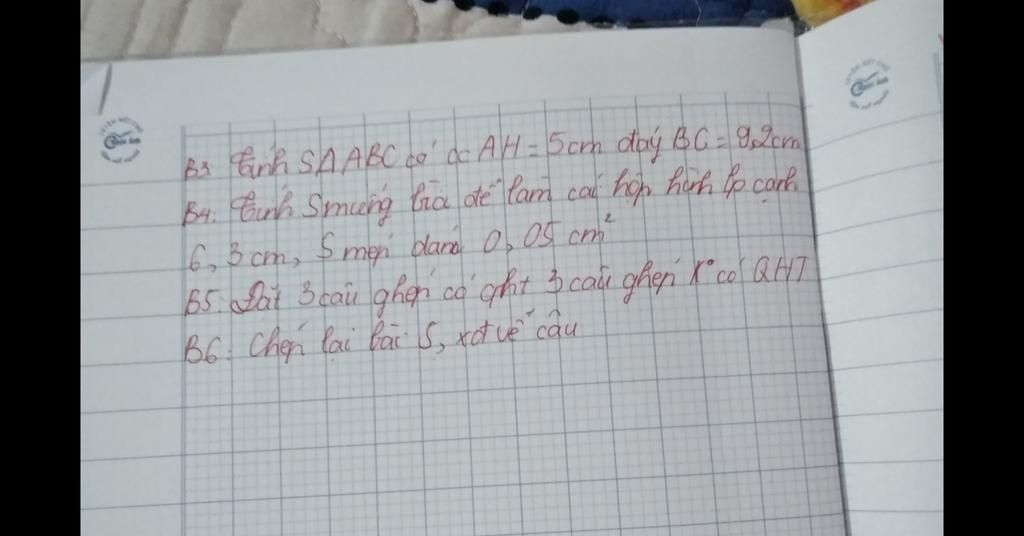 B3 tính SΔABC có đc AH = 5cm đáy BC = 9,2cm
B4: tính Smiếng bìa để làm cái hộp hình lp cạnh
6,3cm, S mép dán 0,05 cm²
B5: Đặt 3 câu ghép có qht 3 câu ghép k° có QHT
B6: Chép lại bài 5, xđ vế câu